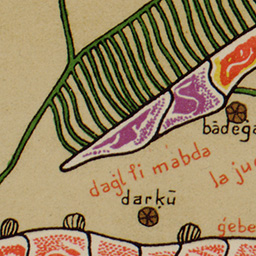 bādega
dagl fi mabda
la ju
darḳū
ġebe